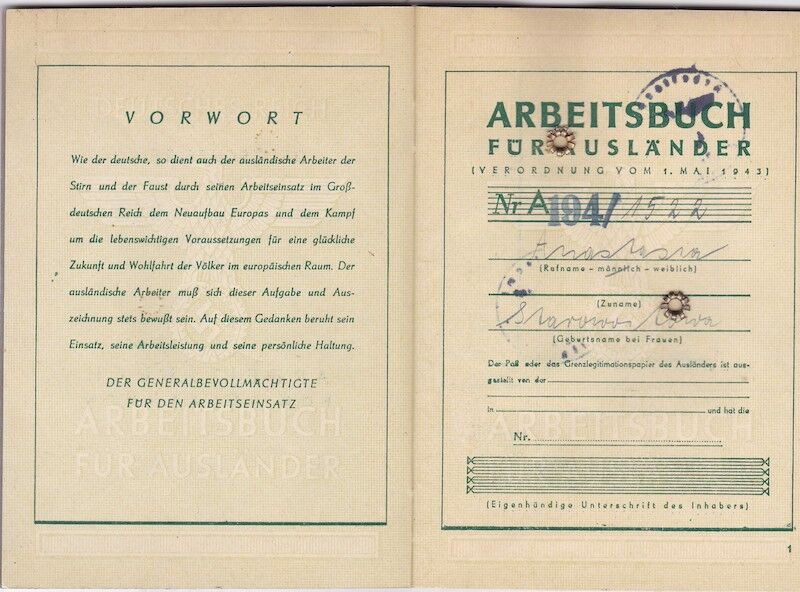 VORWORT
Wie der deutsche, so dient auch der ausländische Arbeiter der
Stirn und der Faust durch seinen Arbeitseinsatz im Groß-
deutschen Reich dem Neuaufbau Europas und dem Kampf
um die lebenswichtigen Voraussetzungen für eine glückliche
Zukunft und Wohlfahrt der Völker im europäischen Raum. Der
ausländische Arbeiter muß sich dieser Aufgabe und Aus-
zeichnung stets bewußt sein. Auf diesem Gedanken beruht sein
Einsatz, seine Arbeitsleistung und seine persönliche Haltung.
DER GENERALBEVOLLMÄCHTIGTE
FÜR DEN ARBEITSEINSATZ
ARBEITSBUCH
FÜR AUSLÄNDER
ARBEITSBUCH
FÜR AUSLÄNDER
(VERORDNUNG VOM 1. MAI 1943)
Nr A 194/1522
Anastasia
(Rufname – männlich – weiblich)
(Zuname)
(Geburtsname bei Frauen)
Der Paß oder das Grenzlegitimationspapier des Ausländers ist aus-
gestellt von der
in und hat die
Nr.
(Eigenhändige Unterschrift des Inhabers)
1